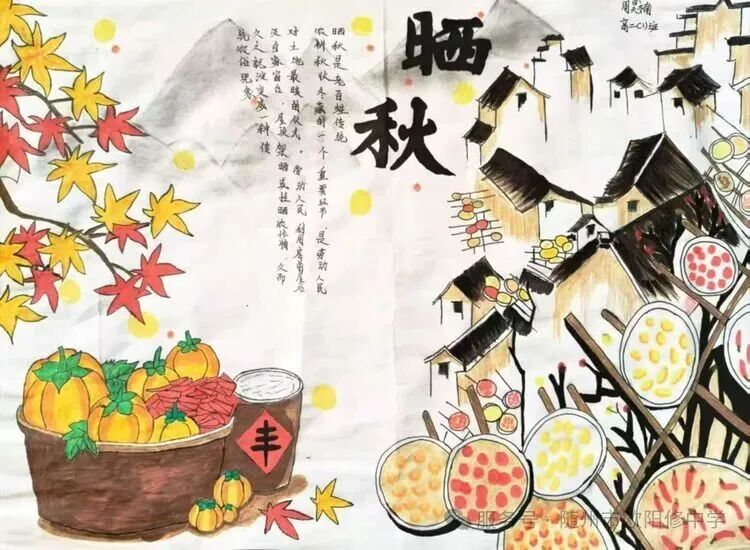 晒秋
高二(1)班
晒秋是老百姓传统
农耕秋收冬藏的一个重要环节,是劳动人民
对土地最暖的仪式。劳动人民利用房前屋后
及自家窗台、屋顶架晒或挂晒农作物,久而
久之就演变成一种传
统农俗现象
丰
服务号·随州市欧阳修中学